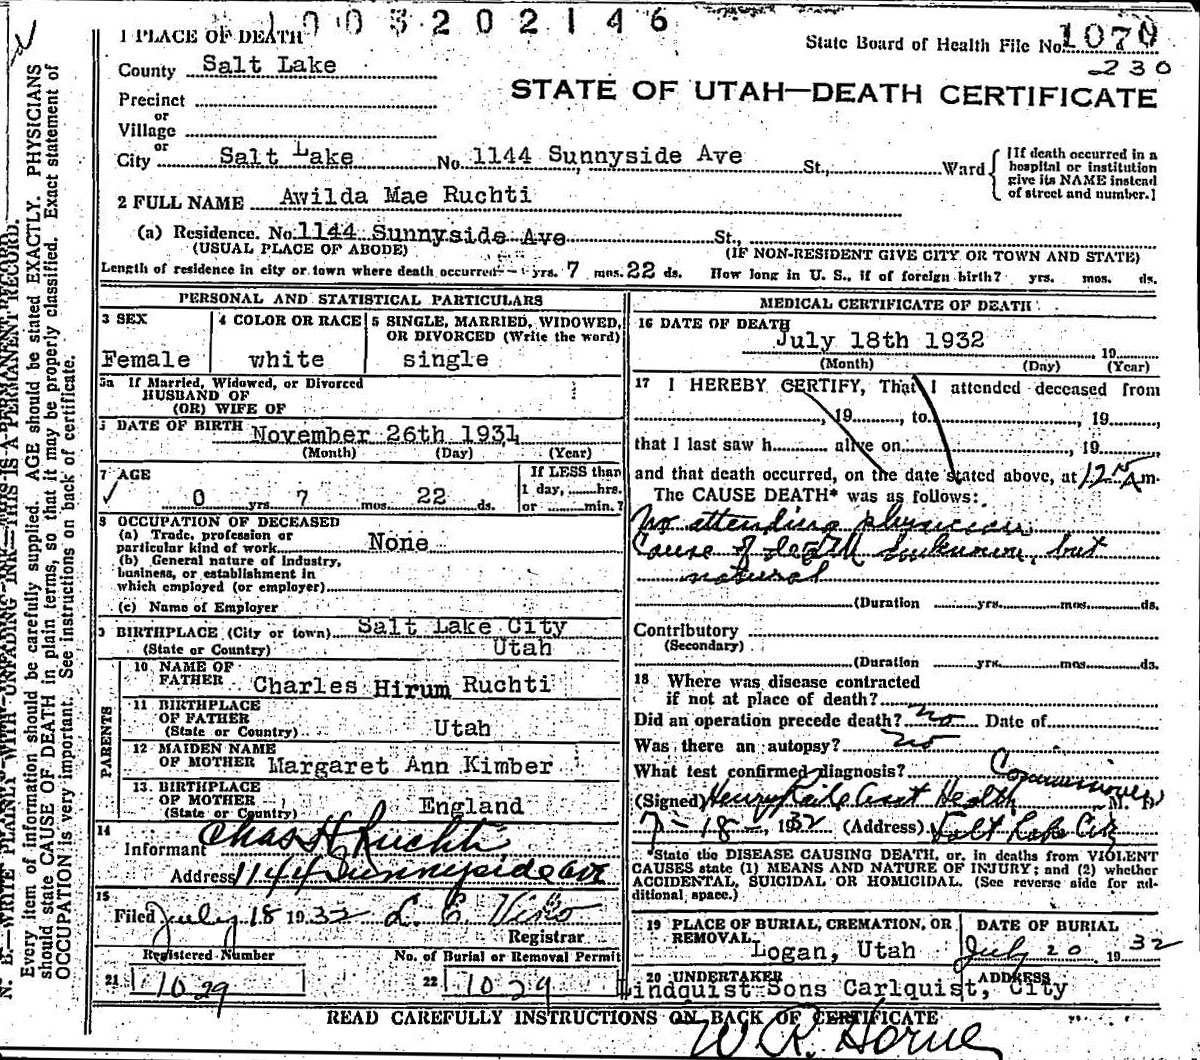 1003202146
State Board of Health File No. 1070
230
1 PLACE OF DEATH
County Salt Lake
STATE OF UTAH—DEATH CERTIFICATE
Precinct
or
Village
or
City Salt Lake No. 1144 Sunnyside Ave St., Ward
[If death occurred in a hospital or institution give its NAME instead of street and number.]
2 FULL NAME Awilda Mae Ruchti
(a) Residence. No. 1144 Sunnyside Ave St.,
(USUAL PLACE OF ABODE) (IF NON-RESIDENT GIVE CITY OR TOWN AND STATE)
Length of residence in city or town where death occurred -- yrs. 7 mos. 22 ds. How long in U. S., if of foreign birth? yrs. mos. ds.
PERSONAL AND STATISTICAL PARTICULARS
3 SEX
Female
4 COLOR OR RACE
white
5 SINGLE, MARRIED, WIDOWED,
OR DIVORCED (Write the word)
single
5a If Married, Widowed, or Divorced
HUSBAND OF
(OR) WIFE OF
DATE OF BIRTH November 26th 1931
(Month) (Day) (Year)
7 AGE
0 yrs. 7 mos. 22 ds.
If LESS than
1 day, hrs.
or min.?
8 OCCUPATION OF DECEASED
(a) Trade, profession or
particular kind of work None
(b) General nature of industry,
business, or establishment in
which employed (or employer)
(c) Name of Employer
9 BIRTHPLACE (City or town) Salt Lake City
(State or Country) Utah
PARENTS
10 NAME OF
FATHER Charles Hirum Ruchti
11 BIRTHPLACE
OF FATHER
(State or Country) Utah
12 MAIDEN NAME
OF MOTHER Margaret Ann Kimber
13 BIRTHPLACE
OF MOTHER
(State or Country) England
14
Informant Chas H Ruchti
Address 1144 Sunnyside ave
15
Filed July 18 1932 L. E. Viko
Registrar
Registered Number No. of Burial or Removal Permit
21 1029 22 1029
MEDICAL CERTIFICATE OF DEATH
16 DATE OF DEATH
July 18th 1932 19
(Month) (Day) (Year)
17 I HEREBY CERTIFY, That I attended deceased from
, 19 , to , 19 ,
that I last saw h alive on , 19
and that death occurred, on the date stated above, at 12 A m.
The CAUSE DEATH* was as follows:
No attending physician
Cause of death unknown, but
natural
(Duration yrs. mos. ds.
Contributory
(Secondary)
(Duration yrs. mos. ds.
18 Where was disease contracted
if not at place of death?
Did an operation precede death? no Date of
Was there an autopsy? no
What test confirmed diagnosis?
Commissioner
(Signed) Henry Raile Asst Health M. D
7-18-, 1932 (Address) Salt Lake City
*State the DISEASE CAUSING DEATH, or, in deaths from VIOLENT
CAUSES state (1) MEANS AND NATURE OF INJURY; and (2) whether
ACCIDENTAL, SUICIDAL OR HOMICIDAL. (See reverse side for ad-
ditional space.)
19 PLACE OF BURIAL, CREMATION, OR
REMOVAL Logan, Utah
DATE OF BURIAL
July 20 1932
20 UNDERTAKER ADDRESS
Lindquist Sons Carlquist, City
READ CAREFULLY INSTRUCTIONS ON BACK OF CERTIFICATE
W. R. Horne
N. B.—WRITE PLAINLY WITH UNFADING INK—THIS IS A PERMANENT RECORD.
Every item of information should be carefully supplied. AGE should be stated EXACTLY. PHYSICIANS
should state CAUSE OF DEATH in plain terms, so that it may be properly classified. Exact statement of
OCCUPATION is very important. See instructions on back of certificate.